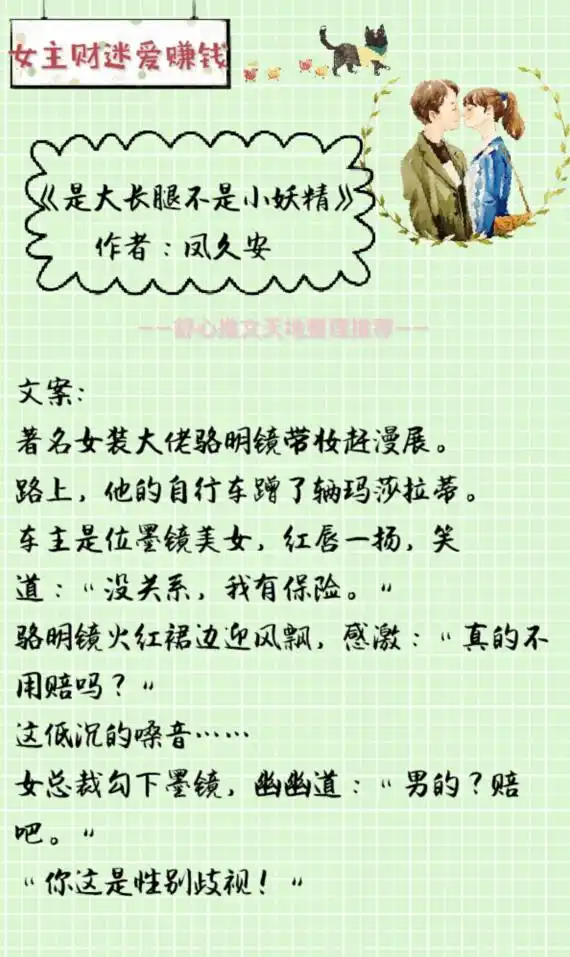 女主财迷爱赚钱
《是大长腿不是小妖精》
作者：凤久安
——舒心推文天地整理推荐——
文案：
著名女装大佬骆明镜带妆赶漫展。
路上，他的自行车蹭了辆玛莎拉蒂。
车主是位墨镜美女，红唇一扬，笑
道：“没关系，我有保险。”
骆明镜火红裙边迎风飘，感激：“真的不
用赔吗？”
这低沉的嗓音……
女总裁勾下墨镜，幽幽道：“男的？赔
吧。”
“你这是性别歧视！”